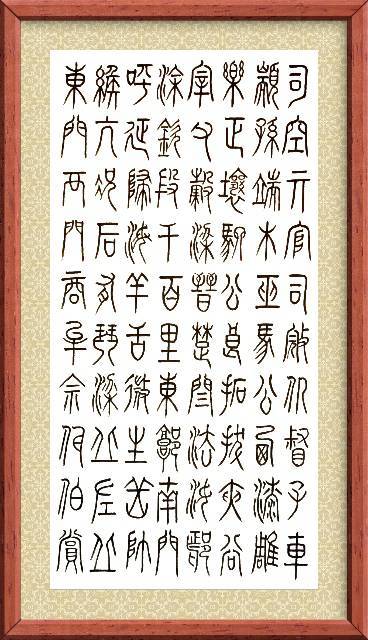 司空亓官司寇仉督子車
顓孫端木巫馬公西漆雕
樂正壤駟公良拓跋夾谷
宰父穀梁晉楚閆法汝鄢
涂欽段干百里東郭南門
呼延歸海羊舌微生岳帥
緱亢況后有琴梁丘左丘
東門西門商牟佘佴伯賞